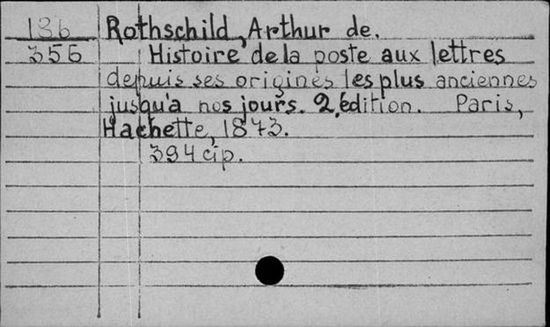 136 Rothschild, Arthur de.
356 Histoire de la poste aux lettres
depuis ses origines les plus anciennes
jusqu'a nos jours. 2. édition. Paris,
Hachette, 1873.
394 cip.